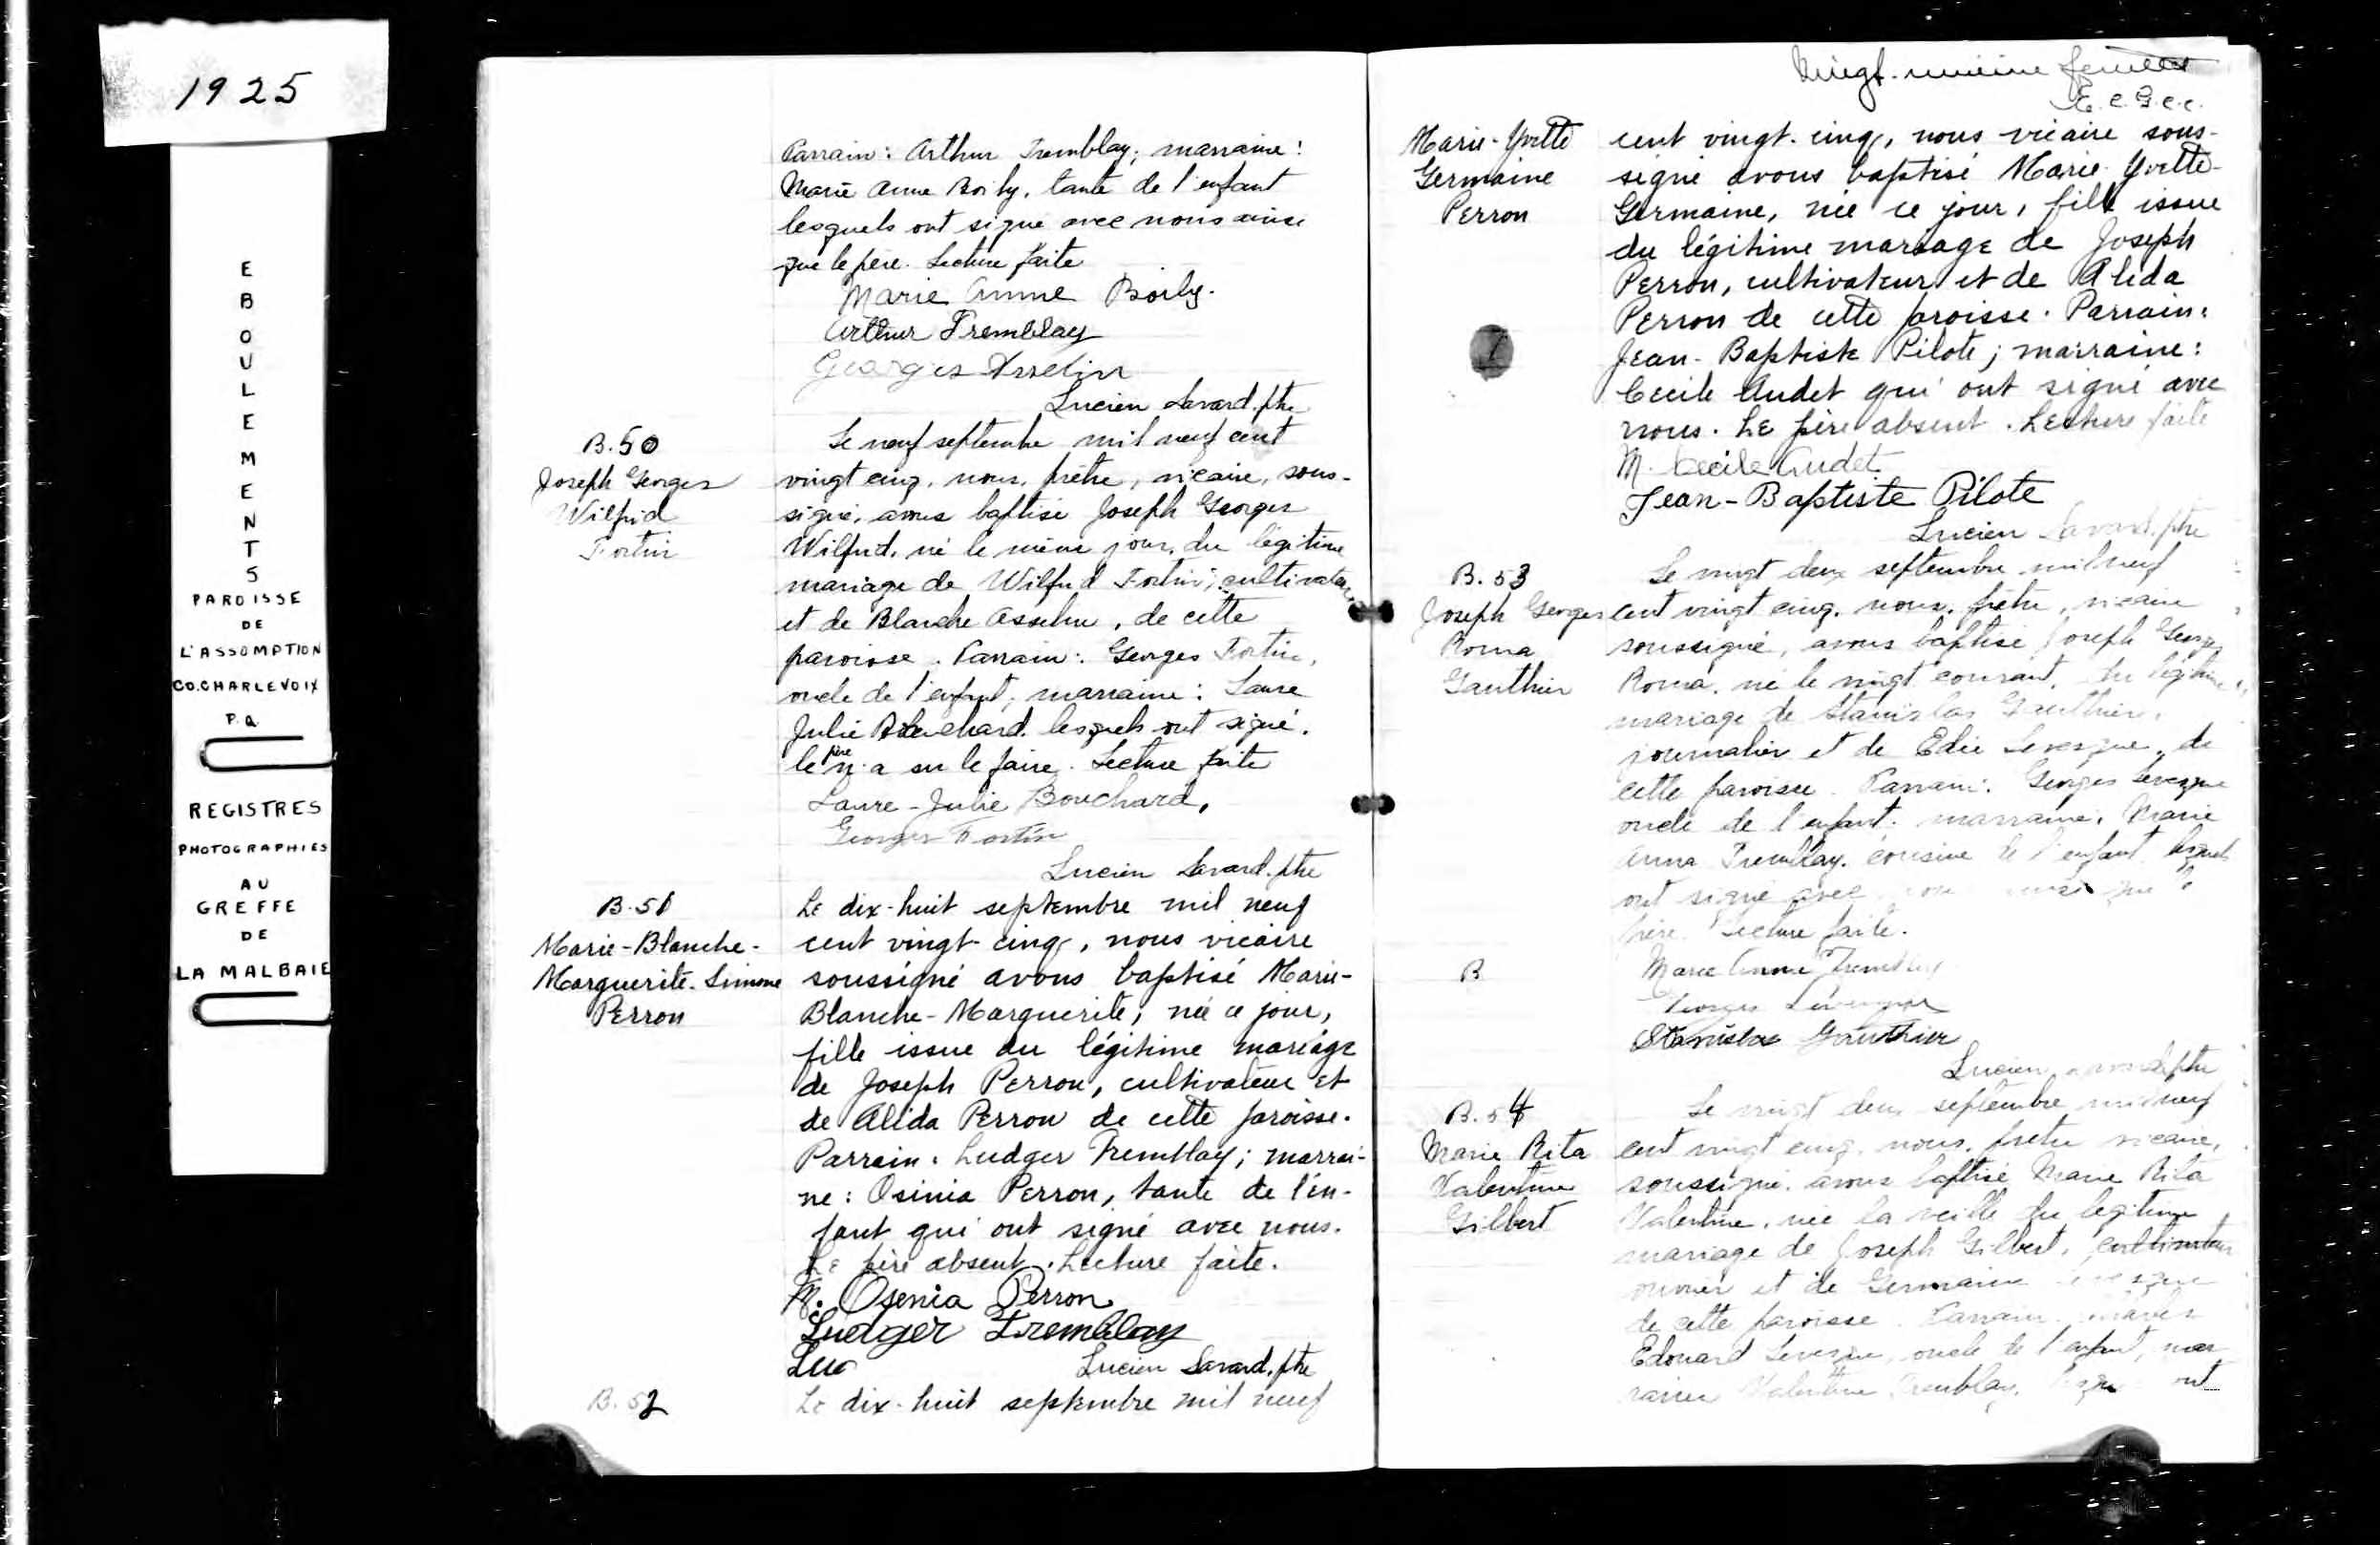 1925
EBOULEMENTS
PAROISSE
DE
L'ASSOMPTION
CO. CHARLEVOIX
P.Q.
REGISTRES
PHOTOGRAPHIES
AU
GREFFE
DE
LA MALBAIE
Parrain: Arthur Tremblay; marraine:
Marie Anne Boily, tante de l'enfant
lesquels ont signé avec nous ainsi
que le père. Lecture faite
Marie Anne Boily.
Arthur Tremblay
Georges Asselin
Lucien Savard. ptre
B.50
Joseph Georges
Wilfrid
Fortin
Le neuf septembre mil neuf cent
vingt cinq, nous, prêtre, vicaire, sous-
signé, avons baptisé Joseph Georges
Wilfrid, né le même jour, du légitime
mariage de Wilfrid Fortin, cultivateur
et de Blanche Asselin, de cette
paroisse. Parrain: Georges Fortin,
oncle de l'enfant; marraine: Laure
Julie Bouchard lesquels ont signé.
le père n'a su le faire. Lecture faite
Laure-Julie Bouchard,
Georges Fortin
Lucien Savard. ptre
B.51
Marie-Blanche-
Marguerite-Simone
Perron
Le dix-huit septembre mil neuf
cent vingt-cinq, nous vicaire
soussigné avons baptisé Marie-
Blanche-Marguerite, née ce jour,
fille issue du légitime mariage
de Joseph Perron, cultivateur et
de Alida Perron de cette paroisse.
Parrain: Ludger Tremblay; marrai-
ne: Osinia Perron, tante de l'en-
fant qui ont signé avec nous.
Le père absent. Lecture faite.
M. Osenia Perron
Ludger Tremblay
Luc
Lucien Savard. ptre
B.52
Le dix-huit septembre mil neuf
Vingt-unième feuillet
E.C.G.c.c.
Marie-Yvette
Germaine
Perron
cent vingt-cinq, nous vicaire sous-
signé avons baptisé Marie-Yvette-
Germaine, née ce jour, fille issue
du légitime mariage de Joseph
Perron, cultivateur et de Alida
Perron de cette paroisse. Parrain:
Jean-Baptiste Pilote; marraine:
Cécile Audet qui ont signé avec
nous. Le père absent. Lecture faite
M. Cécile Audet
Jean-Baptiste Pilote
Lucien Savard. ptre
B.53
Joseph Georges
Roma
Gauthier
Le vingt deux septembre mil neuf
cent vingt cinq, nous, prêtre, vicaire
soussigné, avons baptisé Joseph Georges
Roma, né le vingt courant, du légitime
mariage de Stanislas Gauthier,
journalier et de Edie Levesque, de
cette paroisse. Parrain: Georges Levesque
oncle de l'enfant. marraine, Marie
Anna Tremblay, cousine de l'enfant lesquels
ont signé avec nous ainsi que le
père. Lecture faite.
B
Marie Anna Tremblay
Georges Lévesque
Stanislas Gauthier
Lucien Savard ptre
B.54
Marie Rita
Valentine
Gilbert
Le vingt deux septembre mil neuf
cent vingt cinq, nous, prêtre vicaire,
soussigné, avons baptisé Marie Rita
Valentine, née la veille du légitime
mariage de Joseph Gilbert, cultivateur
ouvrier et de Germaine Levesque
de cette paroisse. Parrain
Edouard Levesque, oncle de l'enfant, mar
raine Valentine Tremblay, lesquels ont